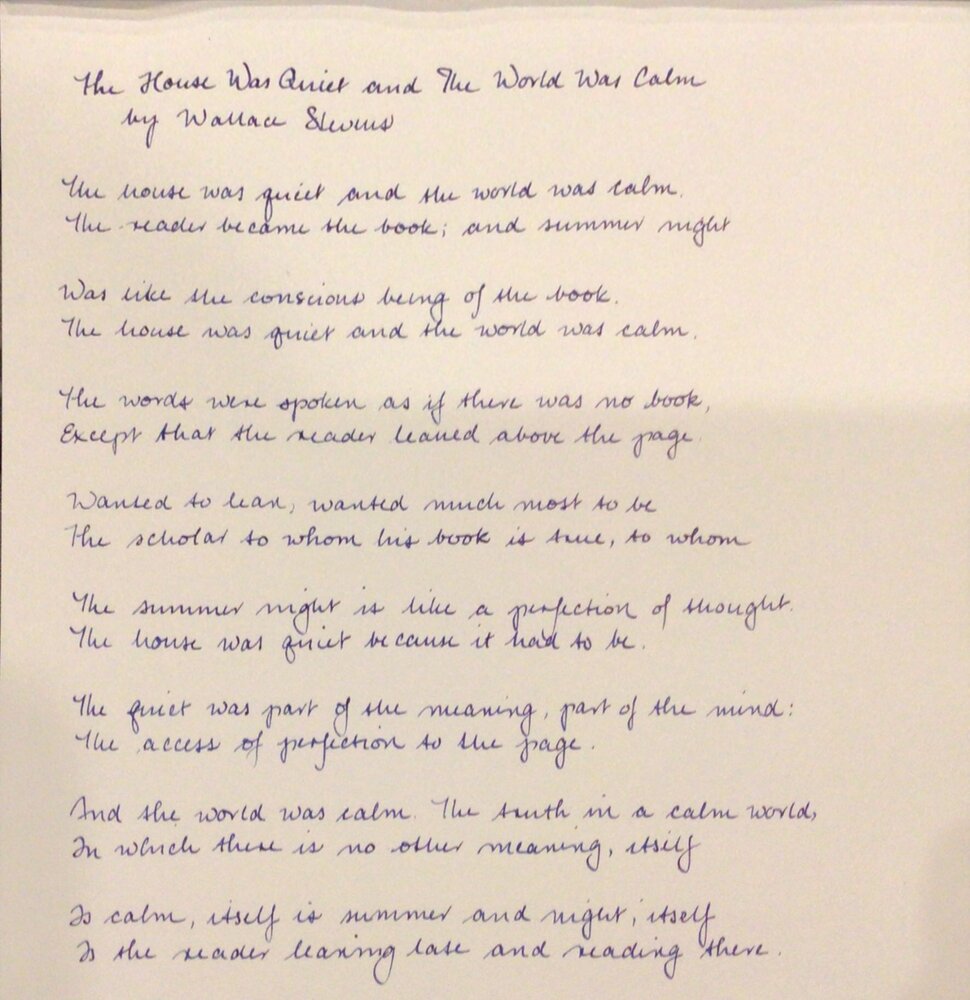 The House Was Quiet and The World Was Calm
by Wallace Stevens
The house was quiet and the world was calm.
The reader became the book; and summer night
Was like the conscious being of the book.
The house was quiet and the world was calm.
The words were spoken as if there was no book,
Except that the reader leaned above the page.
Wanted to lean, wanted much most to be
The scholar to whom his book is true, to whom
The summer night is like a perfection of thought.
The house was quiet because it had to be.
The quiet was part of the meaning, part of the mind:
The access of perfection to the page.
And the world was calm. The truth in a calm world,
In which there is no other meaning, itself
Is calm, itself is summer and night, itself
Is the reader leaning late and reading there.